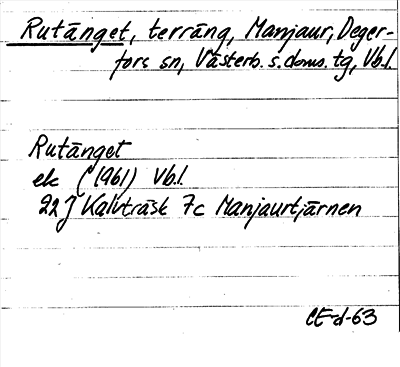 Rutänget, terräng, Manjaur, Deger-
fors sn, Västerb. s. doms. tg, Vb.l.
Rutänget
ek (1961) Vb.l.
22J Kalvträsk 7c Manjaurtjärnen
CE-d-63